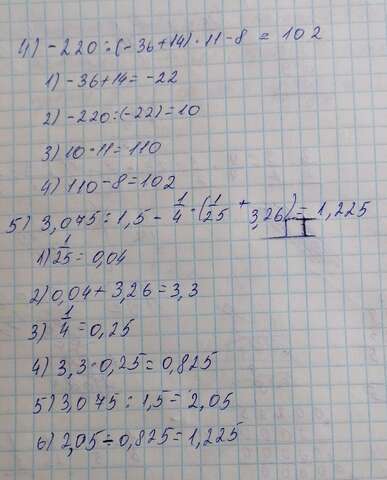 4) -220:(-36+14)·11-8 = 102
1) -36+14=-22
2) -220:(-22)=10
3) 10·11=110
4) 110-8=102
5) 3,075:1,5-1/4·(1/25+3,26)=1,225
1) 1/25=0,04
2) 0,04+3,26=3,3
3) 1/4=0,25
4) 3,3·0,25=0,825
5) 3,075:1,5=2,05
6) 2,05÷0,825=1,225